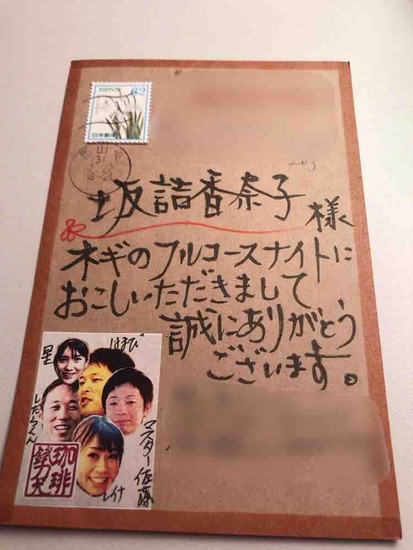 NIPPON 62
日本郵便
坂詰香奈子 様
ネギのフルコースナイトに
おこしいただきまして
誠にありがとう
ございます。
星
はまび
マスター佐藤
レイナ
珈琲